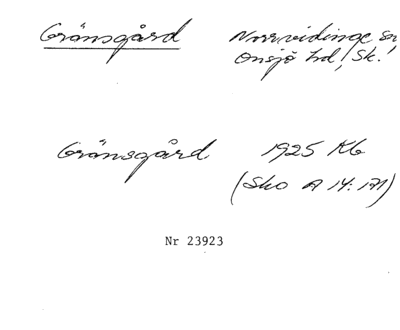 Gränsgård Norrvidinge sn
Onsjö hd, Sk.
Gränsgård 1925 Kb
(Sko A 14:171)
Nr 23923